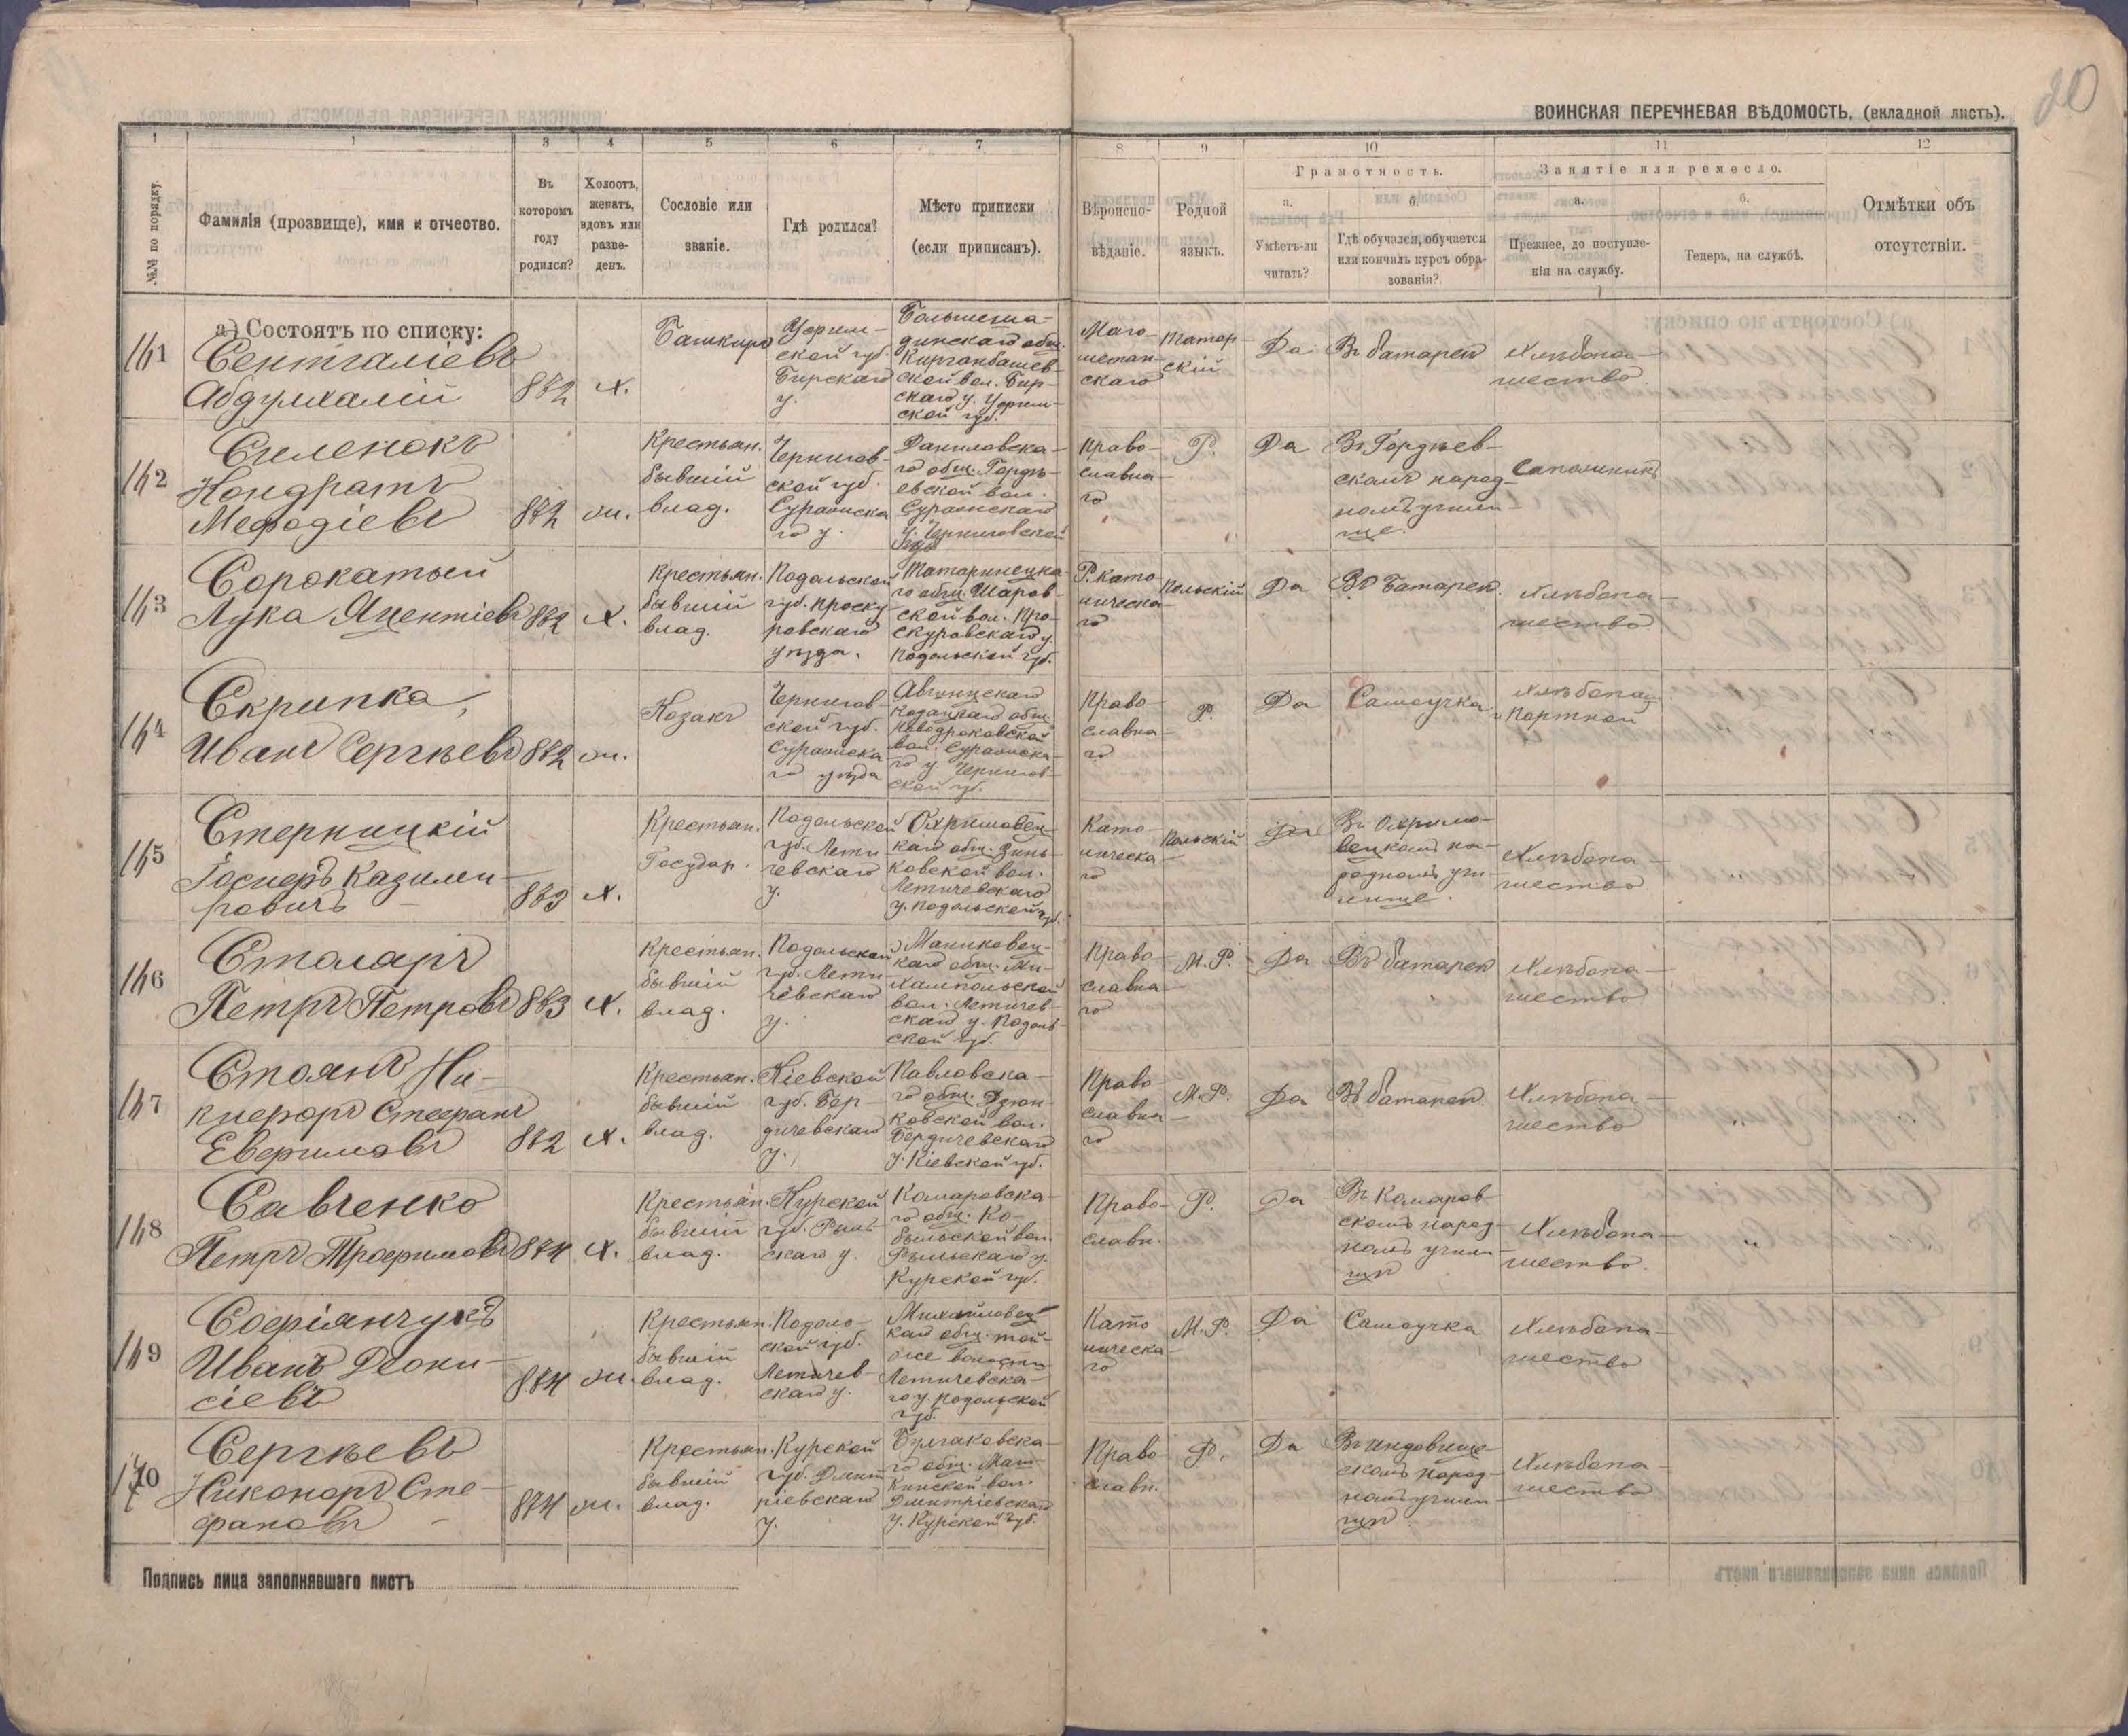 20
ВОИНСКАЯ ПЕРЕЧНЕВАЯ ВѢДОМОСТЬ, (вкладной листъ).
1 1 3 4 5 6 7 8 9 10 11 12
№№ по порядку.
Фамилія (прозвище), имя и отчество.
Въ которомъ году родился?
Холостъ, женатъ, вдовъ или разведенъ.
Сословіе или званіе.
Гдѣ родился?
Мѣсто приписки (если приписанъ).
Вѣроисповѣданіе.
Родной языкъ.
Грамотность.
а. Умѣетъ-ли читать?
б. Гдѣ обучался, обучается или кончилъ курсъ образованія?
Занятіе или ремесло.
а. Прежнее, до поступленія на службу.
б. Теперь, на службѣ.
Отмѣтки объ отсутствіи.
а) Состоятъ по списку:
161 Сентгаліевъ Абдулхалій 872 х. Башкиръ Уфимской губ. Бирскаго у. общ. ской вол. Бирскаго у. Уфимской губ. Магометанскаго Татарскій Да Въ батареѣ Хлѣбопашество
162 Силенокъ Кондратъ Мефодіевъ 872 ж. Крестьян. бывшій влад. Черниговской губ. Суражскаго у. Даниловскаго общ. Гордѣевской вол. Суражскаго у. Черниговской губ. Православнаго Р. Да Въ Гордѣевскомъ народномъ училище. Сапожникъ
163 Сорокатый Лука Яцентіевъ 872 х. Крестьян. бывшій влад. Подольской губ. Проскуровскаго уѣзда. Татаринецкаго общ. Шаровской вол. Проскуровскаго у. Подольской губ. Р. католическаго Польскій Да Въ батареѣ. Хлѣбопашество
164 Скрипка, Иванъ Сергѣевъ 872 ж. Козакъ Черниговской губ. Суражскаго уѣзда общ. Новодроковской вол. Суражскаго у. Черниговской губ. Православнаго Р. Да Самоучка Хлѣбопаш. и портной
165 Стерницкій Госперъ Казимировичъ 873 х. Крестьян. Государ. Подольской губ. Летичевскаго у. Охримовецкаго общ. Зиньковской вол. Летичевскаго у. Подольской губ. Католическаго Польскій Да Въ Охримовецкомъ народномъ училище. Хлѣбопашество
166 Столаръ Петръ Петровъ 873 х. Крестьян. бывшій влад. Подольской губ. Летичевскаго у. Маниковецкаго общ. Михампольской вол. Летичевскаго у. Подольской губ. Православнаго М.Р. Да Въ батареѣ Хлѣбопашество
167 Стоянъ Никифоръ Стефанъ Евфимовъ 872 х. Крестьян. бывшій влад. Кіевской губ. Бердичевскаго у. Павловскаго общ. Дзюнковской вол. Бердичевскаго у. Кіевской губ. Православнаго М.Р. Да Въ батареѣ Хлѣбопашество
168 Савченко Петръ Трофимовъ 874 х. Крестьян. бывшій влад. Курской губ. Рыльскаго у. Комаровскаго общ. Кобыльской вол. Рыльскаго у. Курской губ. Православн. Р. Да Въ Комаровскомъ народномъ училищѣ Хлѣбопашество. "
169 Софіянчукъ Иванъ Деонисіевъ 874 ж. Крестьян. бывшій влад. Подольской губ. Летичевскаго у. Михайловецкаго общ. той-же волости Летичевскаго у. Подольской губ. Католическаго М.Р. Да Самоучка Хлѣбопашество
170 Сергѣевъ Никоноръ Стефановъ 874 ж. Крестьян. бывшій влад. Курской губ. Дмитріевскаго у. общ. вол. Дмитріевскаго у. Курской губ. Православн. Р. Да народномъ училищѣ Хлѣбопашество
Подпись лица заполнявшаго листъ